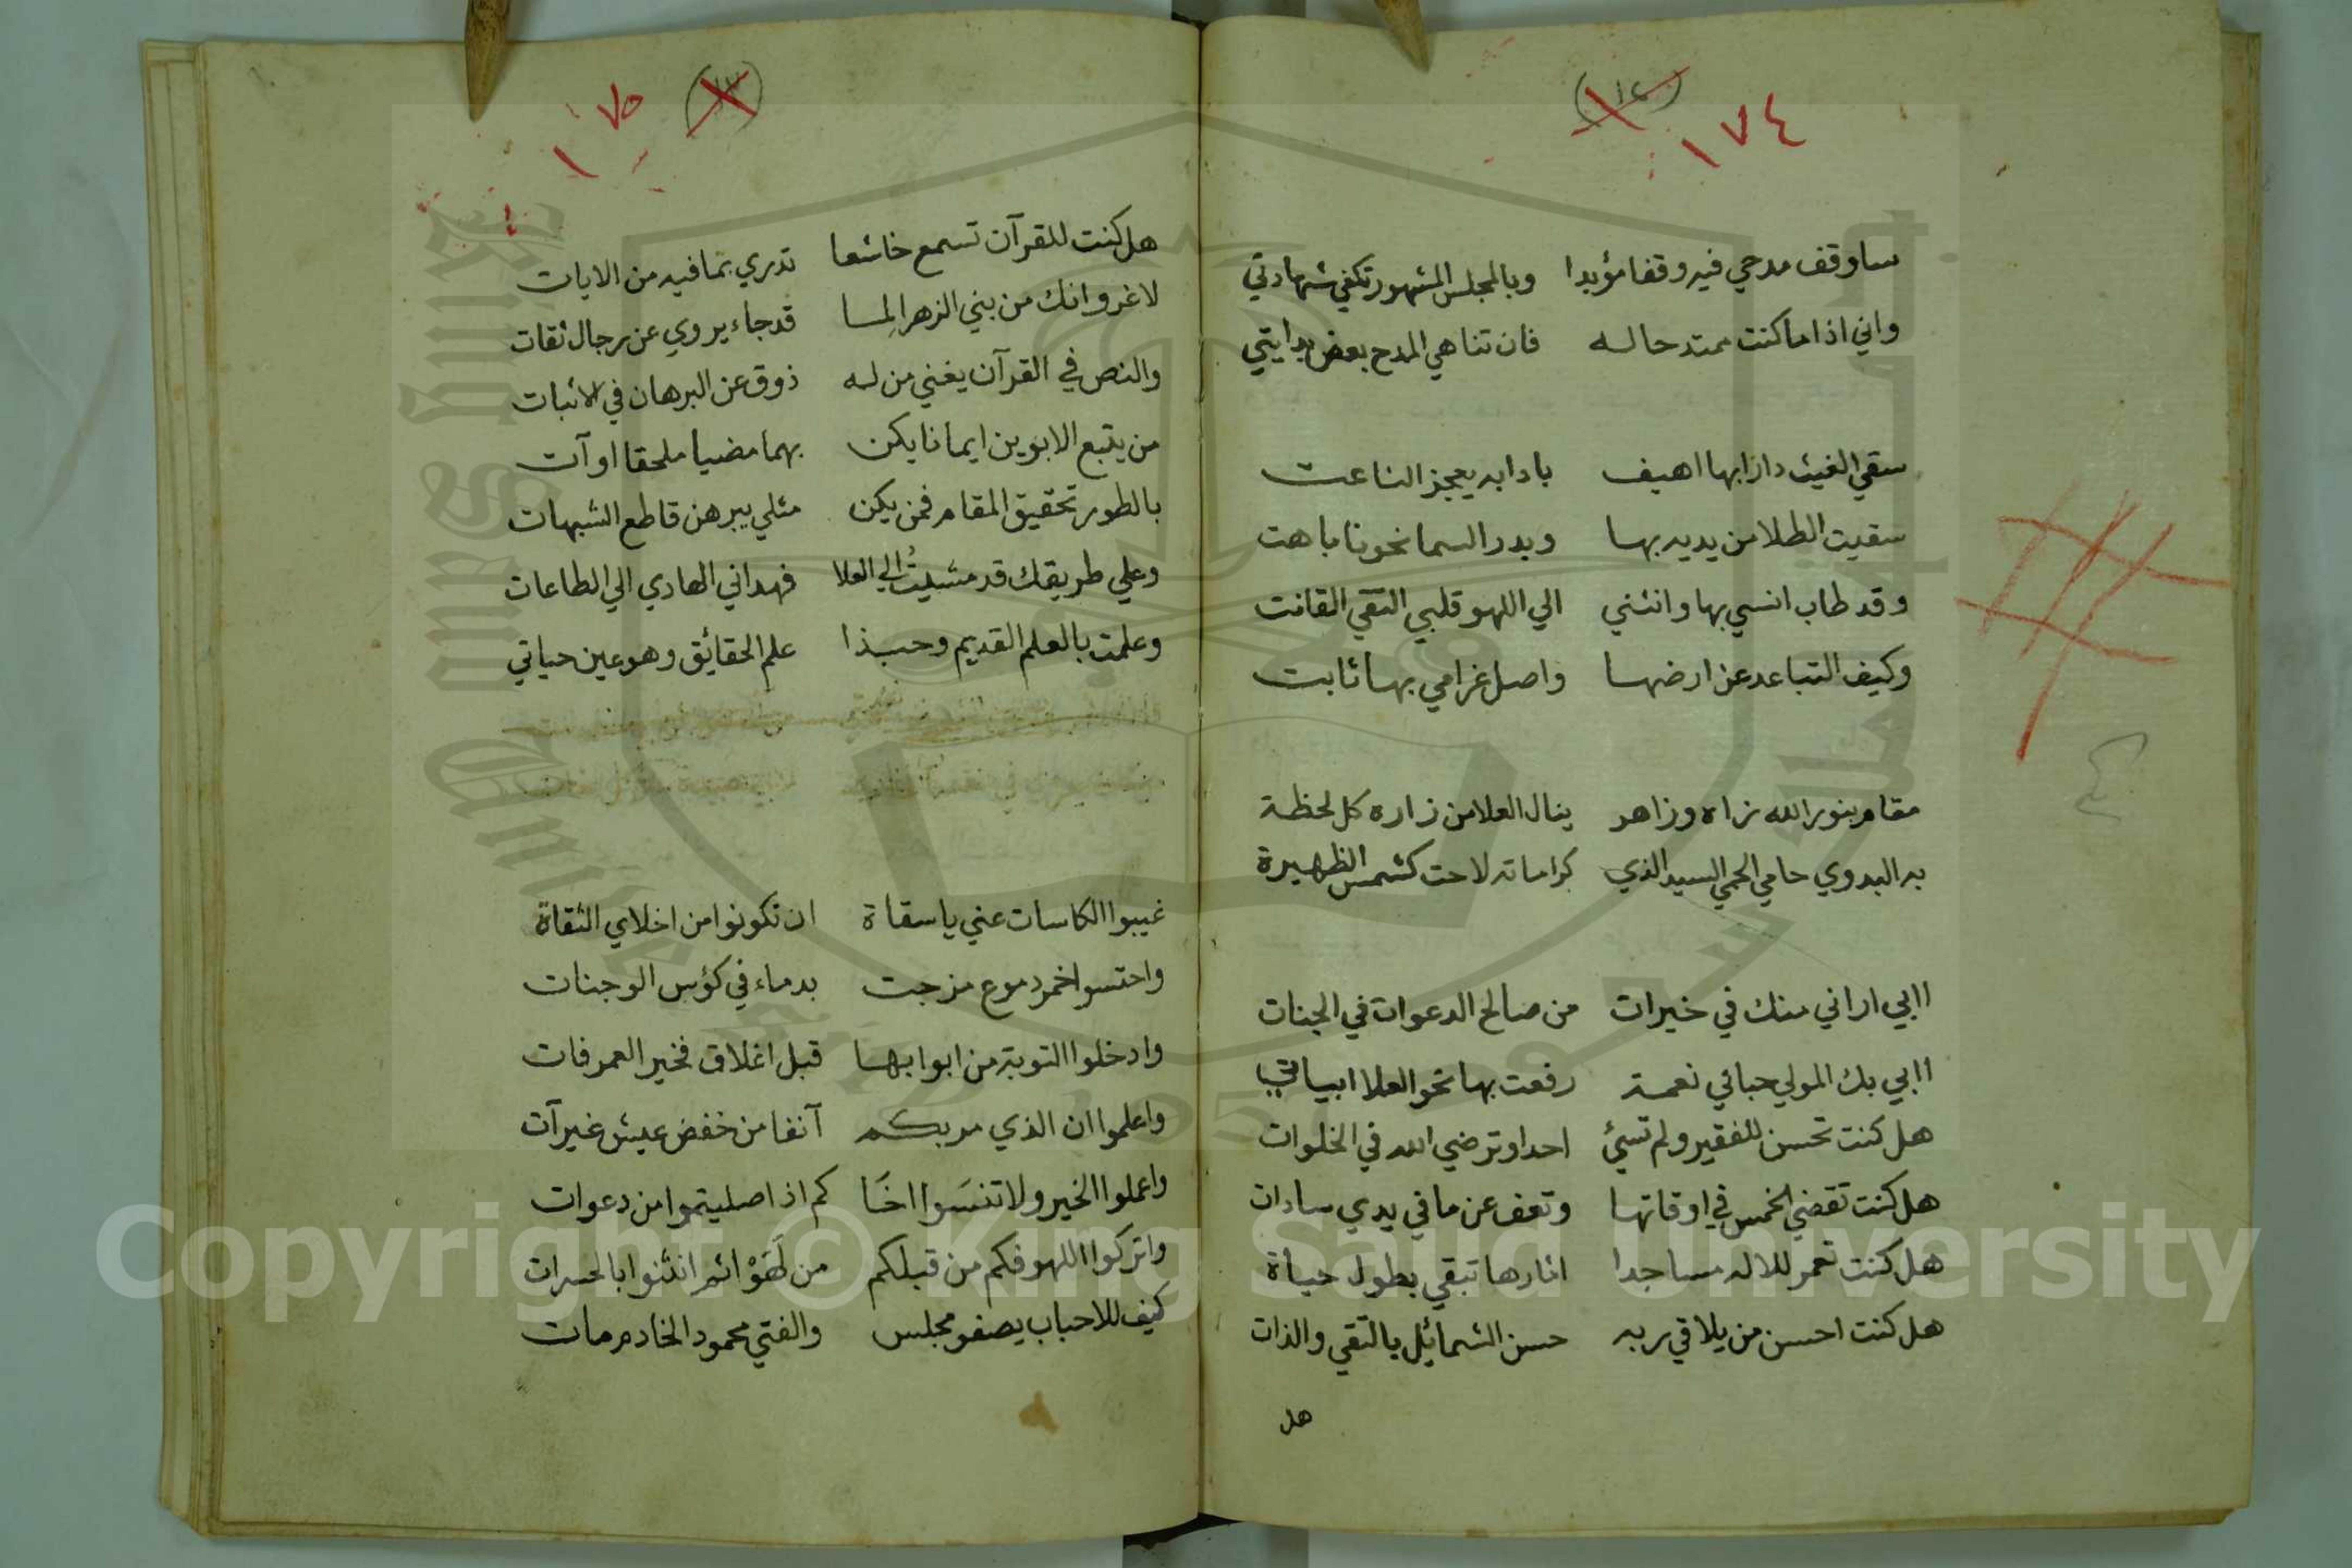 ١٧٤
ساوقف مدحي فيه وقفا مؤبدا وبالمجلس المشهور تكفي شهادتي
واني اذا ما كنت ممتدحا له فان تناهي المدح بعض بدايتي
سقي الغيث دارا بها اهيف بادابه يعجز الناعت
سقيت الطلا من يديه بها وبدر السما نحونا باهت
وقد طاب انسي بها وانثني الي اللهو قلبي التقي القانت
وكيف التباعد عن ارضها واصل غرامي بها ثابت
مقام بنور الله زاه وزاهر ينال العلا من زاره كل لحظة
به البدوي حامي الحمي السيد الذي كراماته لاحت كشمس الظهيرة
اابي اراني منك في خيرات من صالح الدعوات في الجنات
اابي بك المولي حباني نعمة رفعت بها نحو العلا ابياتي
هل كنت تحسن للفقير ولم تسئ احدا وترضي الله في الخلوات
هل كنت تقضي الخمس في اوقاتها وتعف عن ما في يدي سادات
هل كنت تعمر للاله مساجدا اثارها تبقي بطول حياة
هل كنت احسن من يلاقي ربه حسن الشمائل بالتقي والذات
هل
١٧٥
هل كنت للقرآن تسمع خاشعا تدري بما فيه من الايات
لا غرو انك من بني الزهرا لما قد جاء يروي عن رجال ثقات
والنص في القرآن يغني من له ذوق عن البرهان في الاثبات
من يتبع الابوين ايمانا يكن بهما مضيا ملحقا او آت
بالطور تحقيق المقام فمن يكن مثلي يبرهن قاطع الشبهات
وعلي طريقك قد مشيتُ الي العلا فهداني الهادي الي الطاعات
وعلمت بالعلم القديم وحبذا علم الحقائق وهو عين حياتي
غيبوا الكاسات عني يا سقاة ان تكونوا من اخلاي الثقاة
واحتسوا خمر دموع مزجت بدماء في كؤس الوجنات
وادخلوا التوبة من ابوابها قبل اغلاق فخير العمر فات
واعلموا ان الذي مر بكم آنفا من خفض عيش غير آت
واعملوا الخير ولا تنسَوا اخَا كم اذا صليتموا من دعوات
واتركوا اللهو فكم من قبلكم من لَهَوْا ثم انثنوا بالحسرات
كيف للاحباب يصفو مجلس والفتي محمود الخادم مات
Copyright © King Saud University